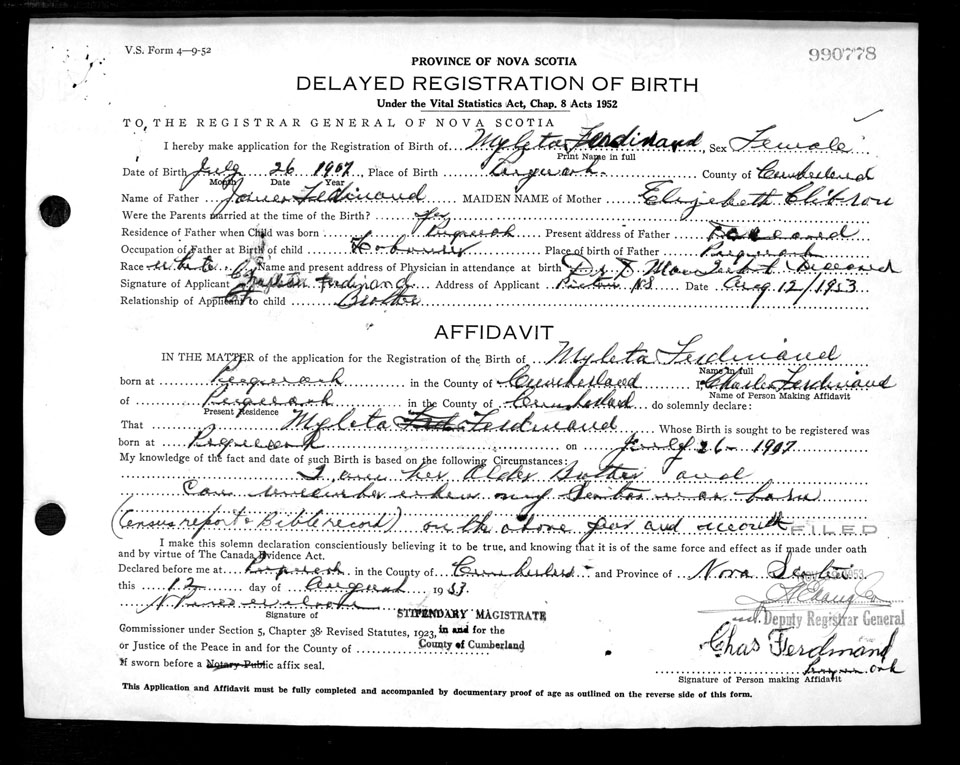 V.S. Form 4—9-52
990778
PROVINCE OF NOVA SCOTIA
DELAYED REGISTRATION OF BIRTH
Under the Vital Statistics Act, Chap. 8 Acts 1952
TO, THE REGISTRAR GENERAL OF NOVA SCOTIA
I hereby make application for the Registration of Birth of Myleta Ferdinand, Sex Female
Print Name in full
Date of Birth July 26 1907, Place of Birth Pugwash County of Cumberland
Month Date Year
Name of Father James Ferdinand MAIDEN NAME of Mother Elizebeth
Were the Parents married at the time of the Birth?
Residence of Father when Child was born : Pugwash Present address of Father
Occupation of Father at Birth of child Place of birth of Father Pugwash
Race white Name and present address of Physician in attendance at birth Dr
Signature of Applicant Ferdinand Address of Applicant Pictou NS Date Aug 12/1953
Relationship of Applicant to child Brother
AFFIDAVIT
IN THE MATTER of the application for the Registration of the Birth of Myleta Ferdinand
Name in full
born at Pugwash in the County of Cumberland I, Charles Ferdinand
Name of Person Making Affidavit
of Pugwash in the County of Cumberland do solemnly declare:
Present Residence
That Myleta Ferdinand Whose Birth is sought to be registered was
born at Pugwash on July 26 - 1907
My knowledge of the fact and date of such Birth is based on the following Circumstances:
I am her Older Brother and
Can remember when my Sister was born
(Census report & Bible record) on the above year and month
FILED
I make this solemn declaration conscientiously believing it to be true, and knowing that it is of the same force and effect as if made under oath
and by virtue of The Canada Evidence Act.
Declared before me at Pugwash in the County of Cumberland and Province of Nova Scotia
this 12 day of August 1953.
Signature of
STIPENDARY MAGISTRATE
Deputy Registrar General
Commissioner under Section 5, Chapter 38 Revised Statutes, 1923, in and for the
or Justice of the Peace in and for the County of County of Cumberland
Chas Ferdinand
If sworn before a Notary Public affix seal.
Pugwash
Signature of Person making Affidavit
This Application and Affidavit must be fully completed and accompanied by documentary proof of age as outlined on the reverse side of this form.